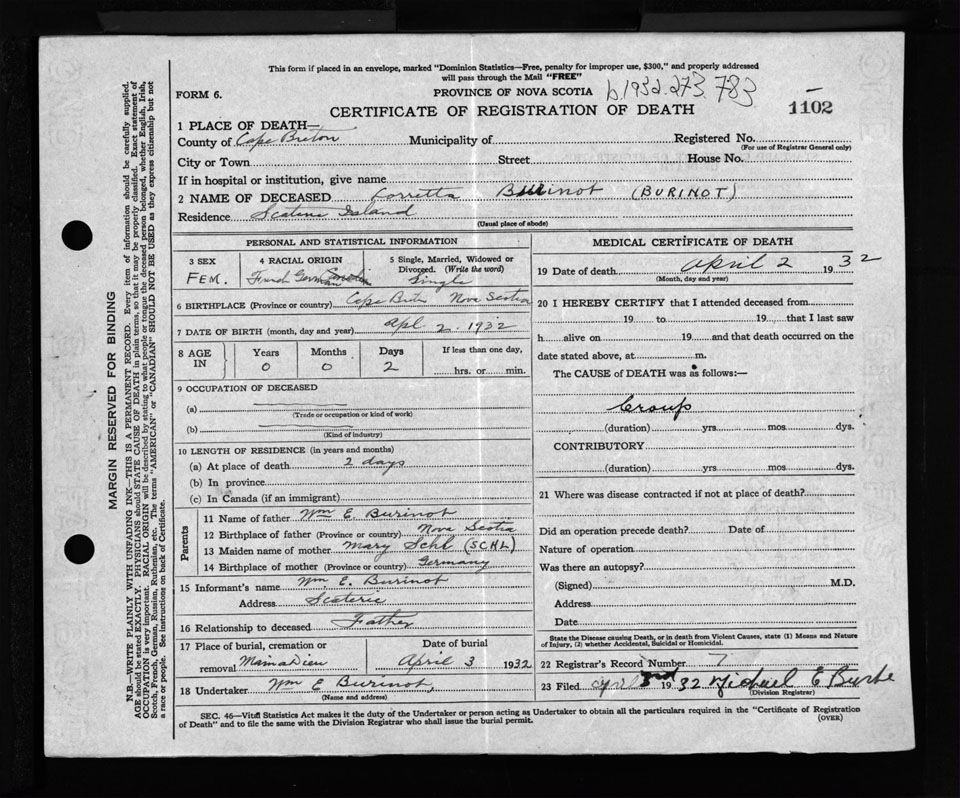 This form if placed in an envelope, marked "Dominion Statistics—Free, penalty for improper use, $300," and properly addressed
will pass through the Mail "FREE"
FORM 6.
PROVINCE OF NOVA SCOTIA
b.1932.273.783
CERTIFICATE OF REGISTRATION OF DEATH
1102
1 PLACE OF DEATH—
County of Cape Breton Municipality of Registered No.
(For use of Registrar General only)
City or Town Street House No.
If in hospital or institution, give name
2 NAME OF DECEASED Lorretta Burinot (BURINOT)
Residence Scaterie Island
(Usual place of abode)
PERSONAL AND STATISTICAL INFORMATION
3 SEX
FEM.
4 RACIAL ORIGIN
French German Canadian
5 Single, Married, Widowed or
Divorced. (Write the word)
Single
6 BIRTHPLACE (Province or country) Cape Breton Nova Scotia
7 DATE OF BIRTH (month, day and year) Apl 2. 1932
8 AGE
IN
Years Months Days If less than one day,
0 0 2 hrs. or min.
9 OCCUPATION OF DECEASED
(a)
(Trade or occupation or kind of work)
(b)
(Kind of industry)
10 LENGTH OF RESIDENCE (in years and months)
(a) At place of death 2 days
(b) In province
(c) In Canada (if an immigrant)
Parents
11 Name of father Wm E. Burinot
12 Birthplace of father (Province or country) Nova Scotia
13 Maiden name of mother Mary Schl (SCHL)
14 Birthplace of mother (Province or country) Germany
15 Informant's name Wm. E. Burinot
Address Scaterie
16 Relationship to deceased Father
17 Place of burial, cremation or
removal Mainadieu
Date of burial
April 3 1932
18 Undertaker Wm E Burinot,
(Name and address)
MEDICAL CERTIFICATE OF DEATH
19 Date of death April 2 1932
(Month, day and year)
20 I HEREBY CERTIFY that I attended deceased from
19 to 19 that I last saw
h alive on 19 and that death occurred on the
date stated above, at m.
The CAUSE of DEATH was as follows:—
Croup
(duration) yrs. mos. dys.
CONTRIBUTORY
(duration) yrs. mos. dys.
21 Where was disease contracted if not at place of death?
Did an operation precede death? Date of
Nature of operation
Was there an autopsy?
(Signed) M.D.
Address
Date
State the Disease causing Death, or in death from Violent Causes, state (1) Means and Nature
of Injury, (2) whether Accidental, Suicidal or Homicidal.
22 Registrar's Record Number 7
23 Filed April 3rd 1932 Michael E Burke
(Division Registrar)
SEC. 46—Vital Statistics Act makes it the duty of the Undertaker or person acting as Undertaker to obtain all the particulars required in the "Certificate of Registration
of Death" and to file the same with the Division Registrar who shall issue the burial permit.
(OVER)
MARGIN RESERVED FOR BINDING
N.B.—WRITE PLAINLY WITH UNFADING INK—THIS IS A PERMANENT RECORD. Every item of information should be carefully supplied.
AGE should be stated EXACTLY. PHYSICIANS should STATE CAUSE OF DEATH in plain terms, so that it may be properly classified. Exact statement of
OCCUPATION is very important. RACIAL ORIGIN will be described by stating to what people or tongue the deceased person belonged, whether English, Irish,
Scotch, French, German, Russian, Ruthenian, etc. The terms "AMERICAN" or "CANADIAN" SHOULD NOT BE USED as they express citizenship but not
a race or people. See instructions on back of Certificate.